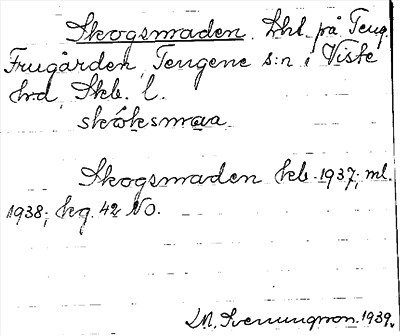 Skogsmaden, Lhl. på Teng.
Frugården, Tengene s:n i Viste
hrd, Skb. l.
skóksmaa
Skogsmaden hb. 1937; ml.
1938; hg. 42 NO.
Sverungsson. 1939.